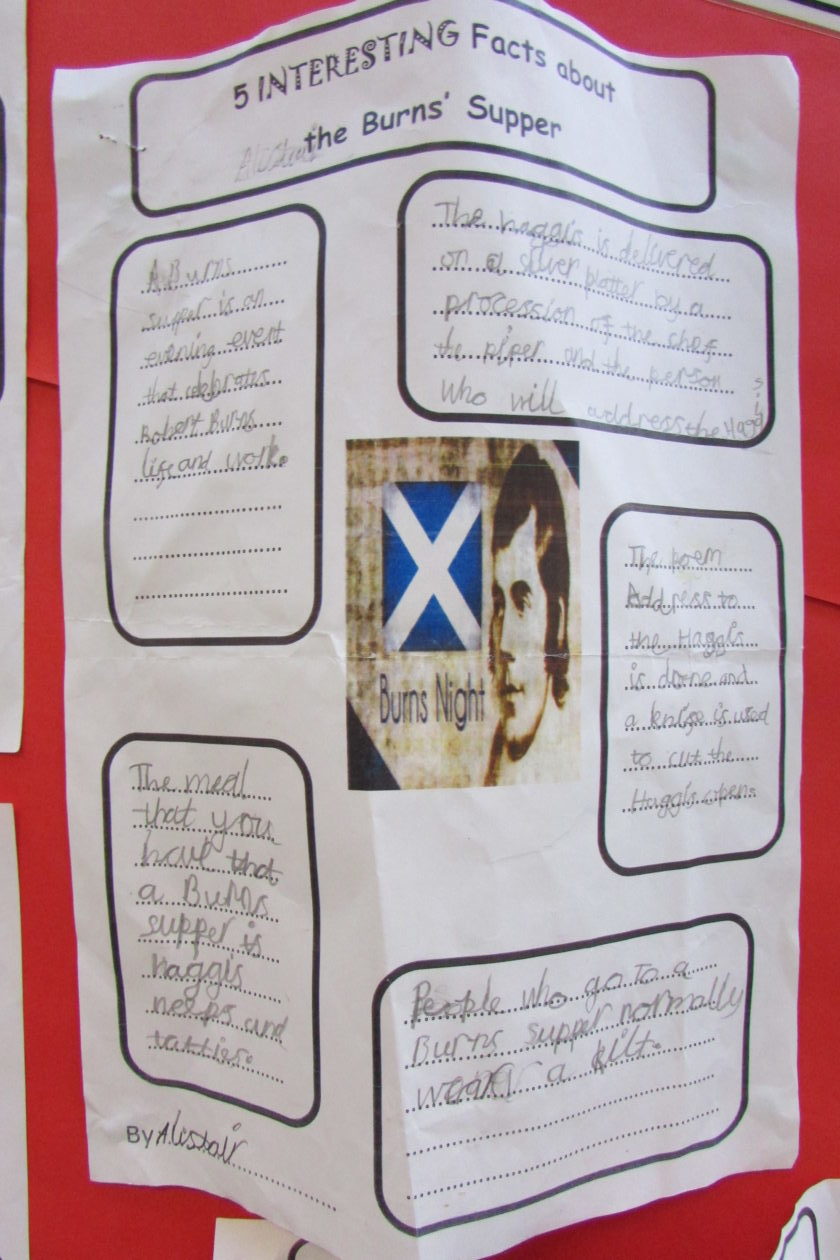 5 INTERESTING Facts about
the Burns' Supper
A Burns
supper is an
evening event
that celebrates
Robert Burns
life and work.
The haggis is delivered
on a silver platter by a
procession of the chef
the piper and the person
who will address the Haggis
Burns Night
The poem
Address to
the Haggis
is done and
a knife is used
to cut the
Haggis open.
The meal
that you
have that
a Burns
supper is
haggis
neeps and
tatties.
People who go to a
Burns supper normally
wear a kilt.
By Alistair